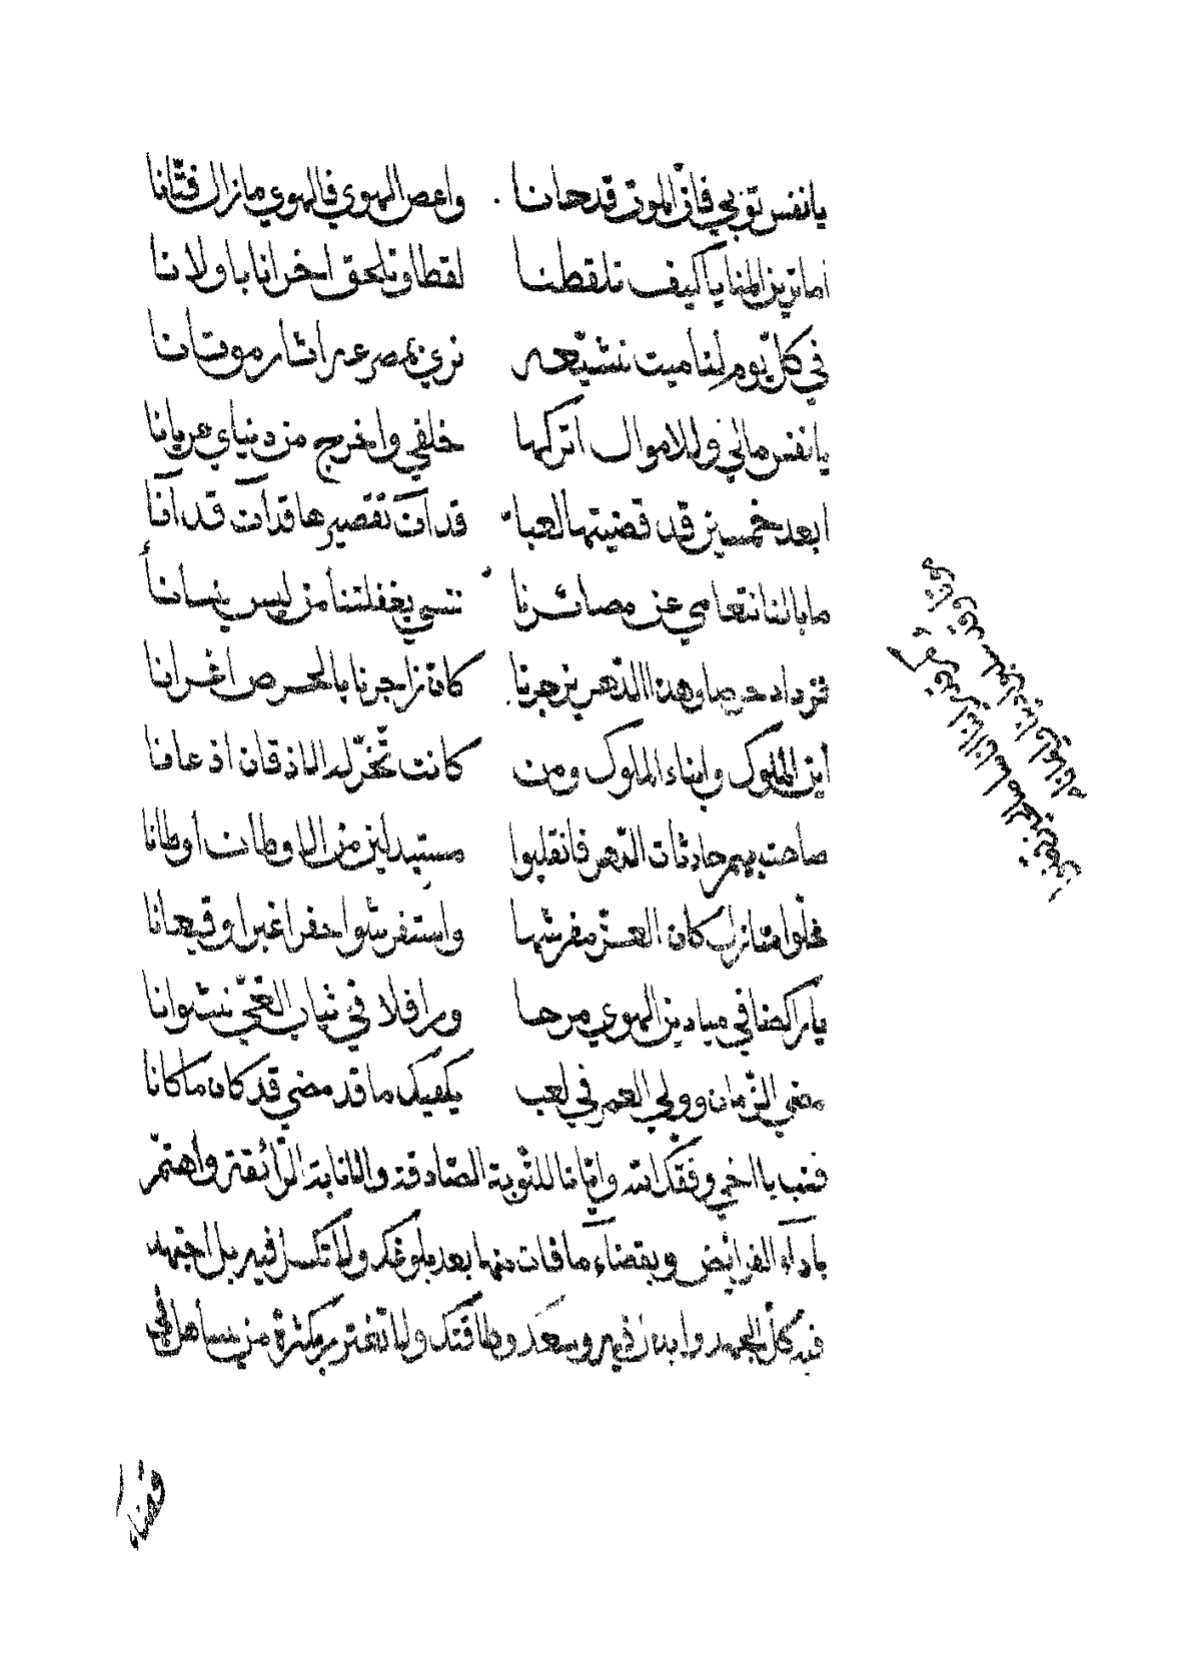 يا نفس توبي فان الموت قد حانا واعص الهوي فالهوي ما زال فتانا
اما ترين المنايا كيف تلقطنا لقطا وتلحق اخرانا باولانا
في كل يوم لنا ميت نشيعه نري بمصرعه اثار موتانا
يا نفس مالي وللاموال اتركها خلفي واخرج من دنياي عريانا
ابعد خمسين قد قضيتها لعبا قد آن تقصيرها قد آن قد آنا
ما بالنا نتعامي عن مصائرنا ننسي بغفلتنا من ليس ينسانا
نزداد حرصا وهذا الدهر يزجرنا كان زاجرنا بالحرص اغرانا
اين الملوك وابناء الملوك ومن كانت تخر له الاذقان اذعانا
صاحت بهم حادثات الدهر فانقلبوا مستبدلين من الاوطان اوطانا
خلوا منازل كان العز مفرشها واستفرشوا حفرا غبرا وقيعانا
يا راكضا في ميادين الهوي مرحا ورافلا في ثياب الغي نشوانا
مضي الزمان وولي العمر في لعب يكفيك ما قد مضي قد كان ما كانا
فتب يا اخي وفقك الله وايانا للتوبة الصادقة والانابة الرائقة واهتم
باداء الفرائض وبقضاء ما فات منها بعد بلوغك ولا تكسل فيه بل اجتهد
فيه كل الجهد وابذل فيه وسعك وطاقتك ولا تغتر بكثرة من يساهل في
قضاء